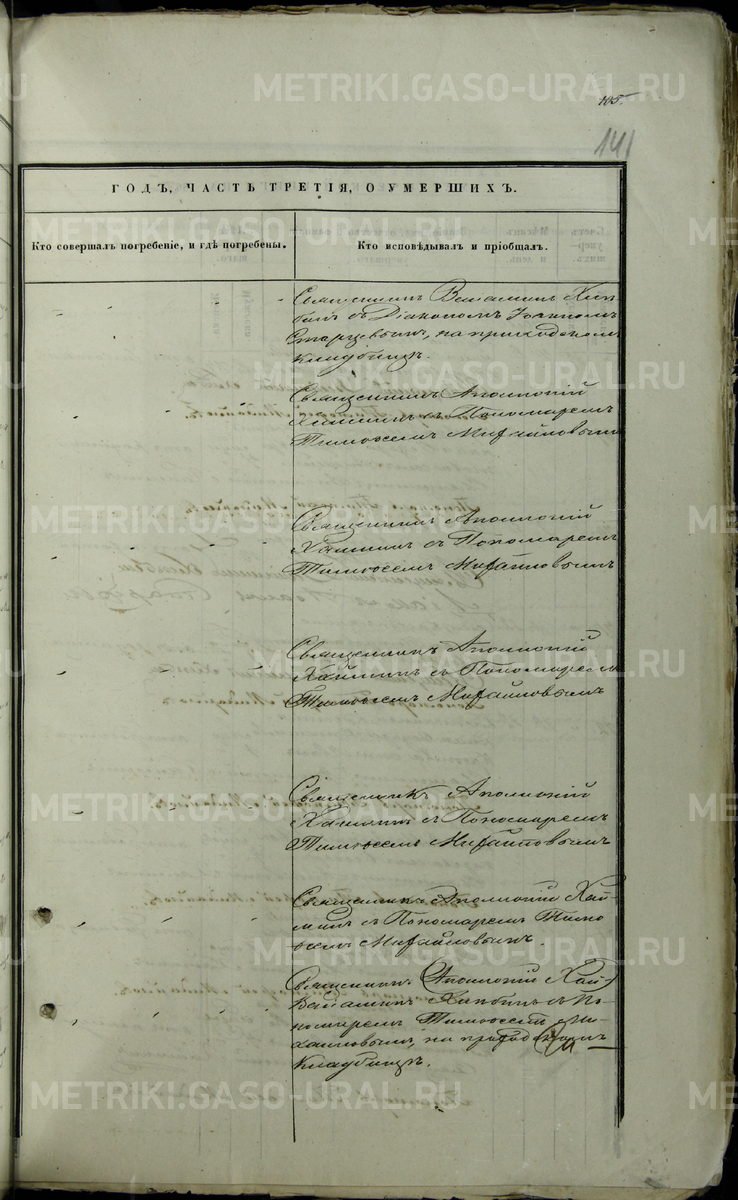 METRIKI.GASO-URAL.RU
105.
141
ГОДЪ, ЧАСТЬ ТРЕТІЯ, О УМЕРШИХЪ.
Кто совершалъ погребеніе, и гдѣ погребены.
Кто исповѣдывалъ и пріобщалъ.
Священникъ
съ Діакономъ Іоанномъ
Старцевымъ, на приходскомъ
кладбищѣ.
Священникъ Аполлоній
съ Пономаремъ
Тимоѳеемъ Михайловымъ
Священникъ Аполлоній
съ Пономаремъ
Тимоѳеемъ Михайловымъ
Священникъ Аполлоній
съ Пономаремъ
Тимоѳеемъ Михайловымъ
Священникъ Аполлоній
съ Пономаремъ
Тимоѳеемъ Михайловымъ
Священникъ Аполлоній Хай-
съ Пономаремъ Тимо-
ѳеемъ Михайловымъ.
Священникъ (Аполлоній Хай)
съ По-
номаремъ Тимоѳеемъ Ми-
хайловымъ, на приходскомъ
кладбищѣ.